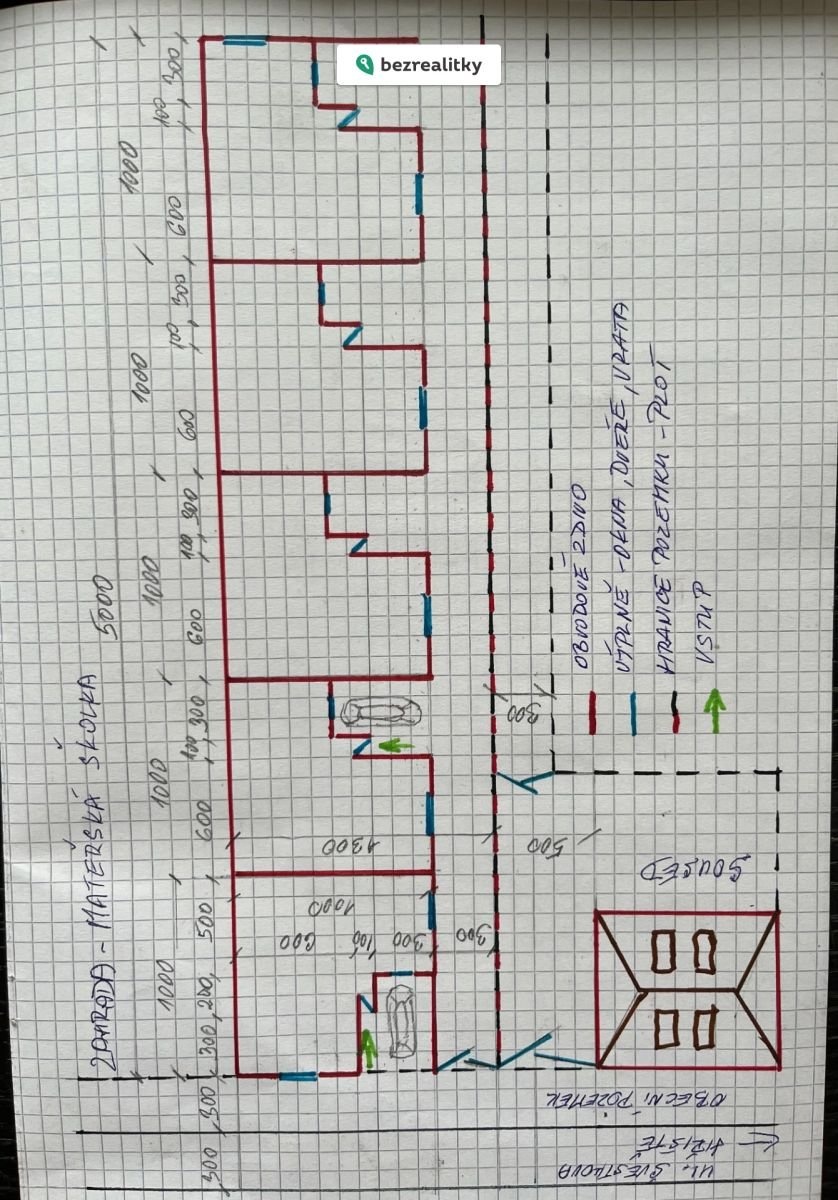 bezrealitky
ZAHRADA - MATEŘSKÁ ŠKOLKA
5000
1000 1000 1000 1000 1000
300 300 300 200 500 600 100 300 600 100 300 600 100 300 600 100 300
600 100 300
1000
300
1300
500
300
SOUSED
OBVODOVÉ ZDIVO
VÝPLNĚ - OKNA, DVEŘE, VRATA
HRANICE POZEMKU - PLOT
VSTUP
OBECNÍ POZEMEK
HŘIŠTĚ
UL. ŠVESTKOVA